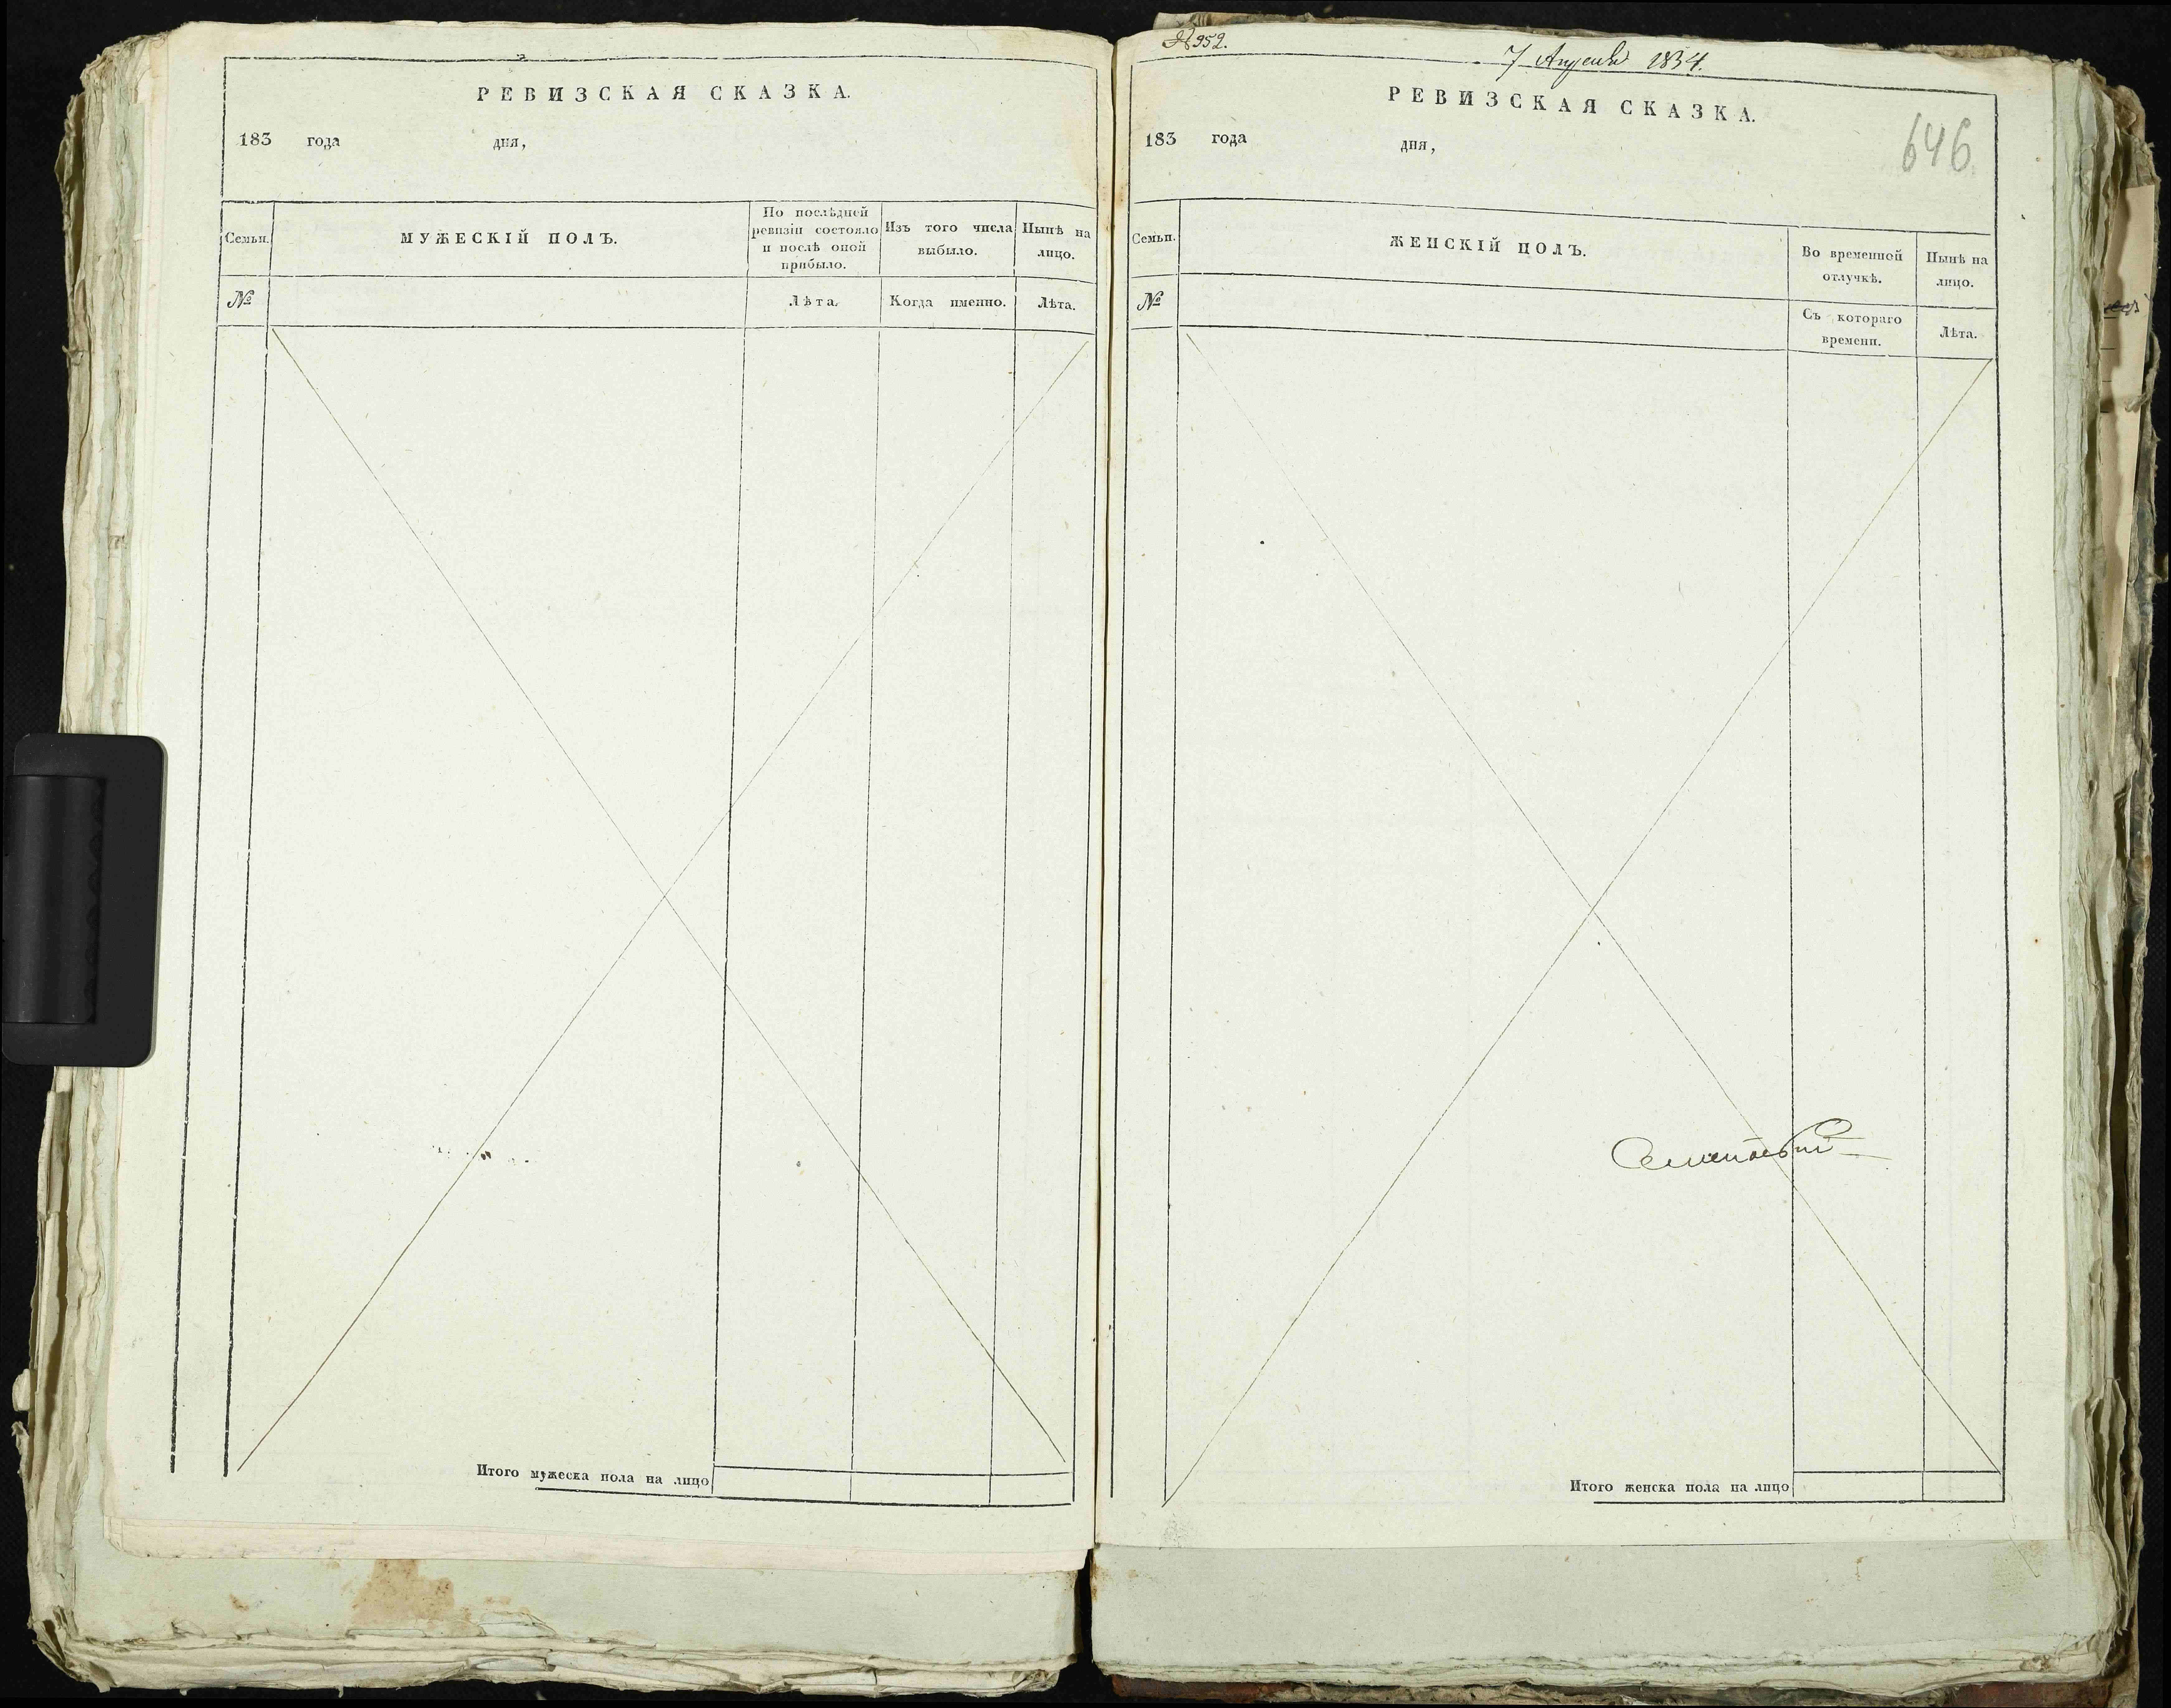 РЕВИЗСКАЯ СКАЗКА.
183 года дня,
Семьи. МУЖЕСКІЙ ПОЛЪ. По послѣдней ревизіи состояло и послѣ оной прибыло. Изъ того числа выбыло. Нынѣ на лицо.
№ Лѣта. Когда именно. Лѣта.
Итого мужеска пола на лицо
№ 952.
7 Апреля 1834.
РЕВИЗСКАЯ СКАЗКА.
646
183 года дня,
Семьи. ЖЕНСКІЙ ПОЛЪ. Во временной отлучкѣ. Нынѣ на лицо.
№ Съ котораго времени. Лѣта.
Итого женска пола на лицо